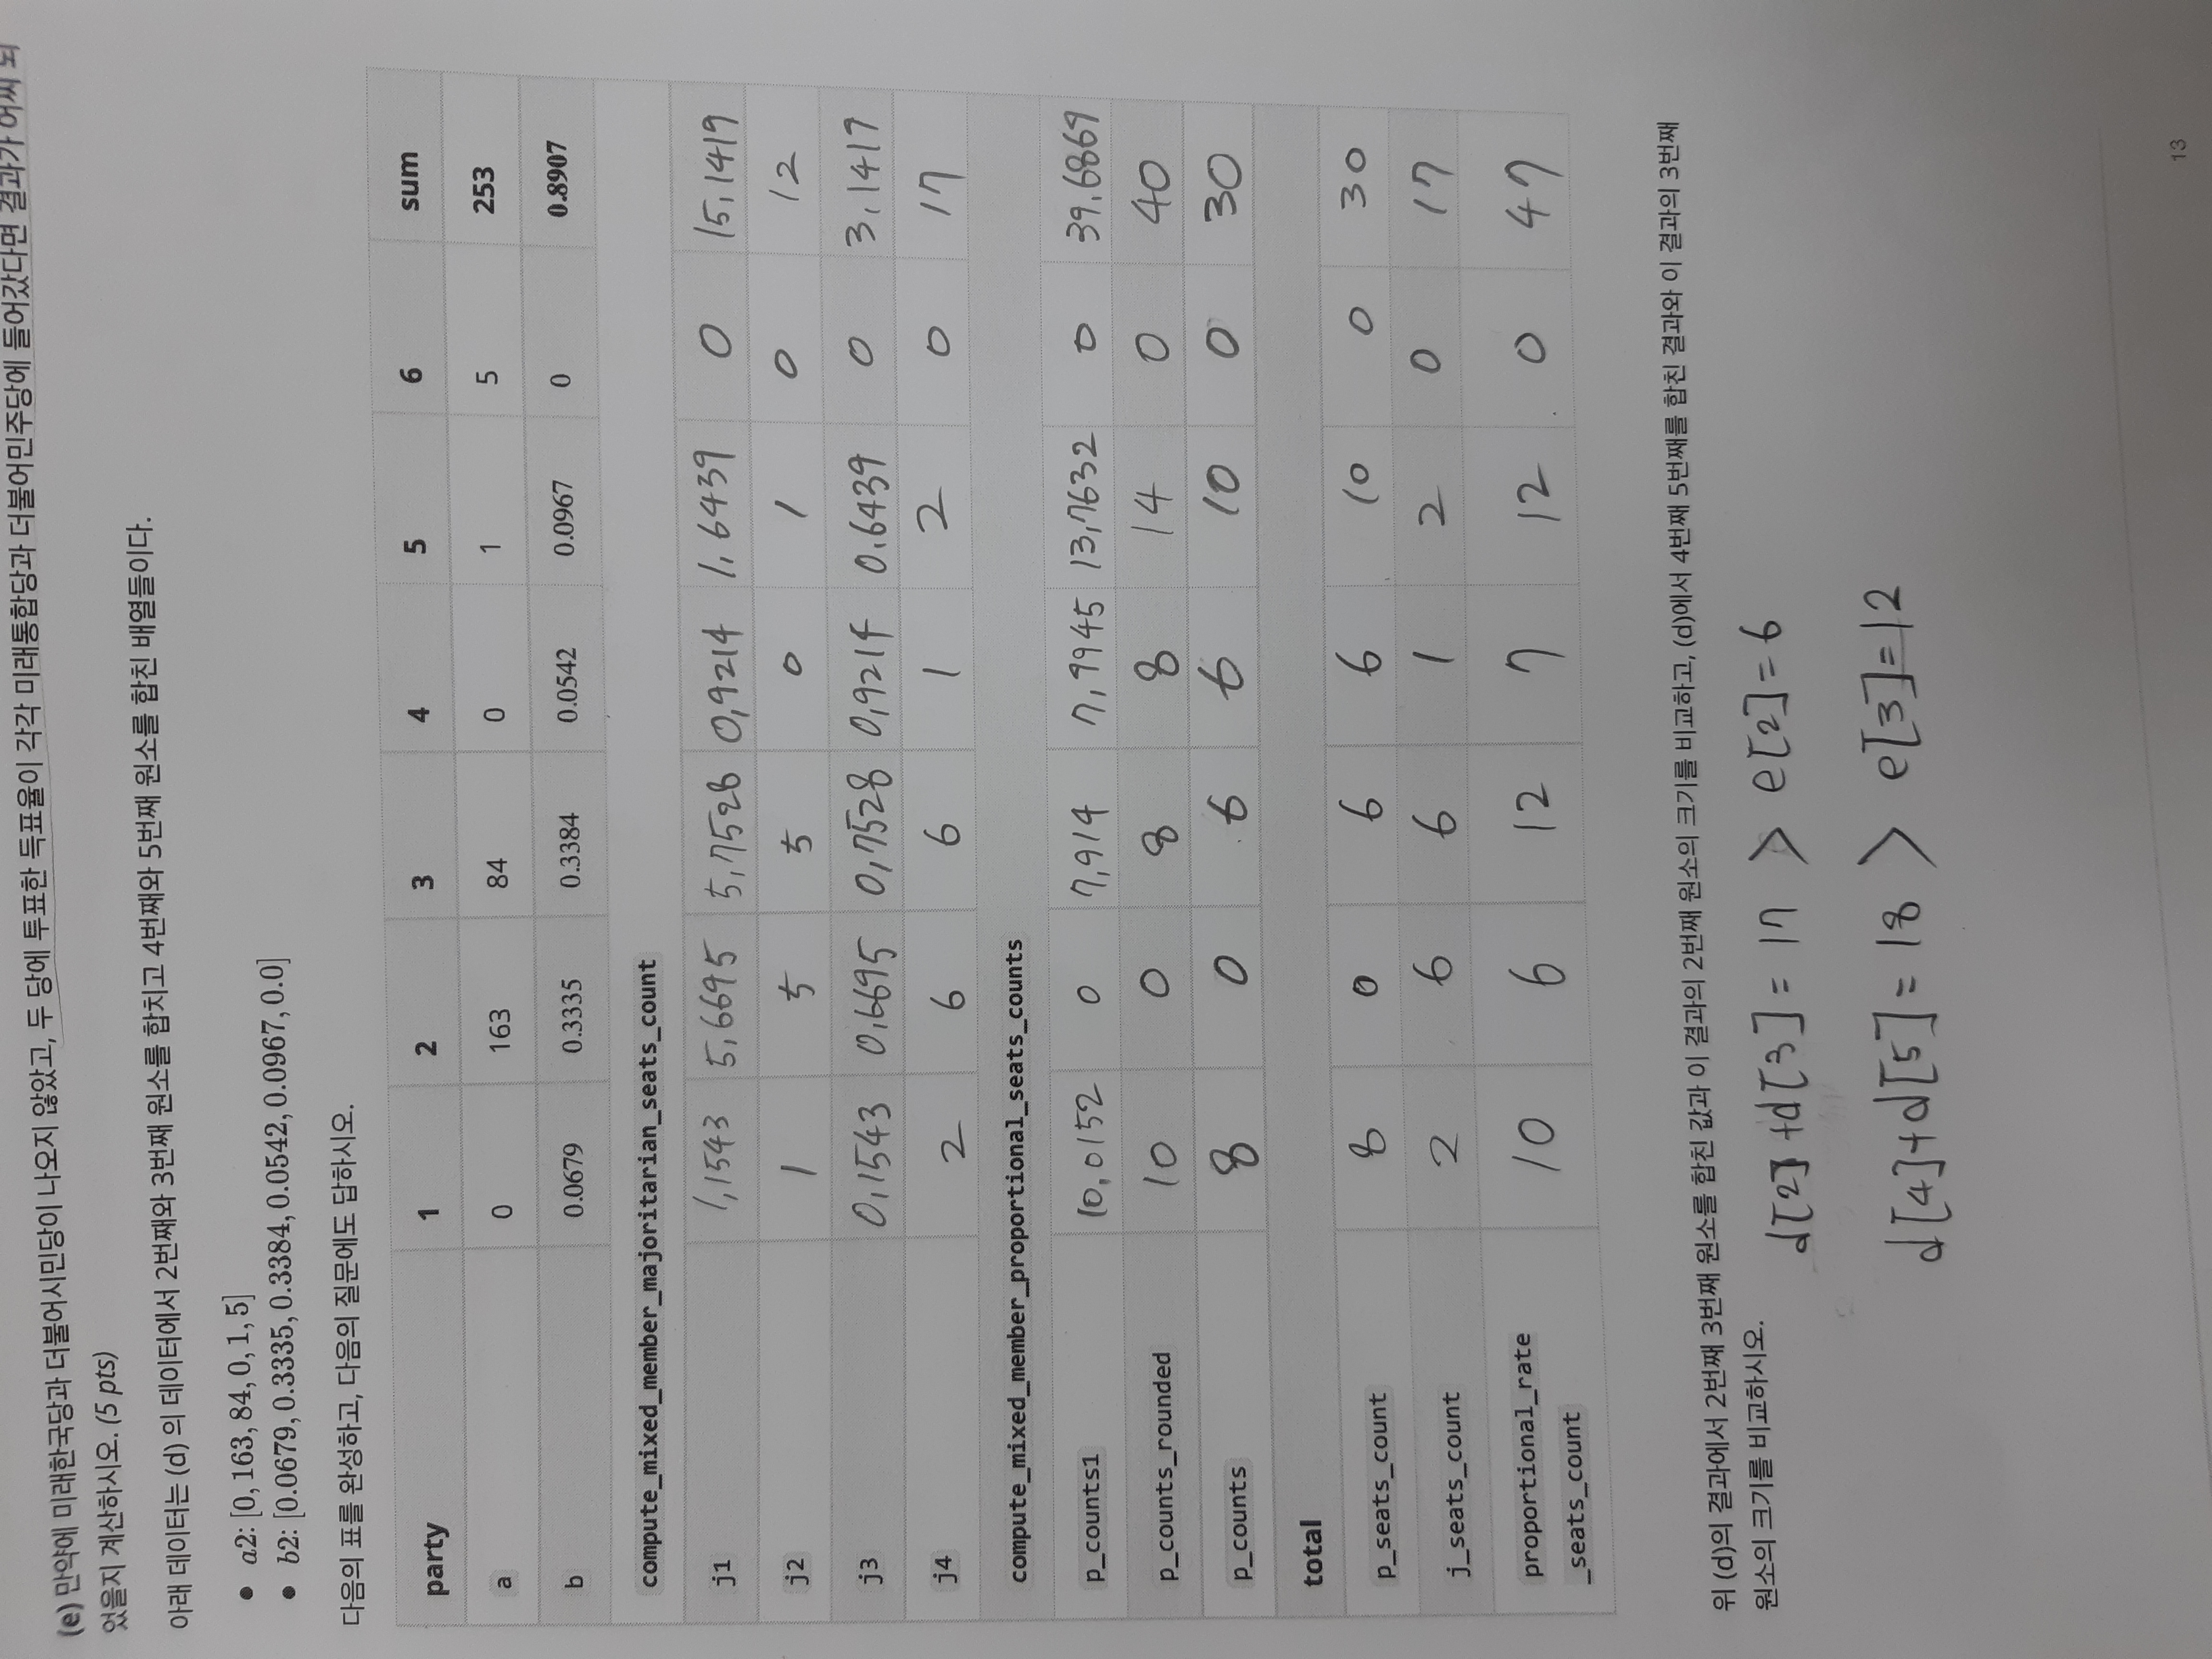 (e) 만약에 미래한국당과 더불어시민당이 나오지 않았고, 두 당에 투표한 득표율이 각각 미래통합당과 더불어민주당에 들어갔다면 결과가 어찌 되
었을지 계산하시오. (5 pts)
아래 데이터는 (d) 의 데이터에서 2번째와 3번째 원소를 합치고 4번째와 5번째 원소를 합친 배열들이다.
• a2: [0, 163, 84, 0, 1, 5]
• b2: [0.0679, 0.3335, 0.3384, 0.0542, 0.0967, 0.0]
다음의 표를 완성하고, 다음의 질문에도 답하시오.
party 1 2 3 4 5 6 sum
a 0 163 84 0 1 5 253
b 0.0679 0.3335 0.3384 0.0542 0.0967 0 0.8907
compute_mixed_member_majoritarian_seats_count
j1 1,1543 5,6695 5,7528 0,9214 1,6439 0 15,1419
j2 1 5 5 0 1 0 12
j3 0,1543 0,6695 0,7528 0,9214 0.6439 0 3,1419
j4 2 6 6 1 2 0 17
compute_mixed_member_proportional_seats_counts
p_counts1 10,0152 0 7,914 7,9945 13,7632 0 39.6869
p_counts_rounded 10 0 8 8 14 0 40
p_counts 8 0 6 6 10 0 30
total
p_seats_count 8 0 6 6 10 0 30
j_seats_count 2 6 6 1 2 0 17
proportional_rate
_seats_count 10 6 12 7 12 0 47
위 (d)의 결과에서 2번째 3번째 원소를 합친 값과 이 결과의 2번째 원소의 크기를 비교하고, (d)에서 4번째 5번째를 합친 결과와 이 결과의 3번째
원소의 크기를 비교하시오.
d[2] + d[3] = 17 > e[2] = 6
d[4] + d[5] = 18 > e[3] = 12
13